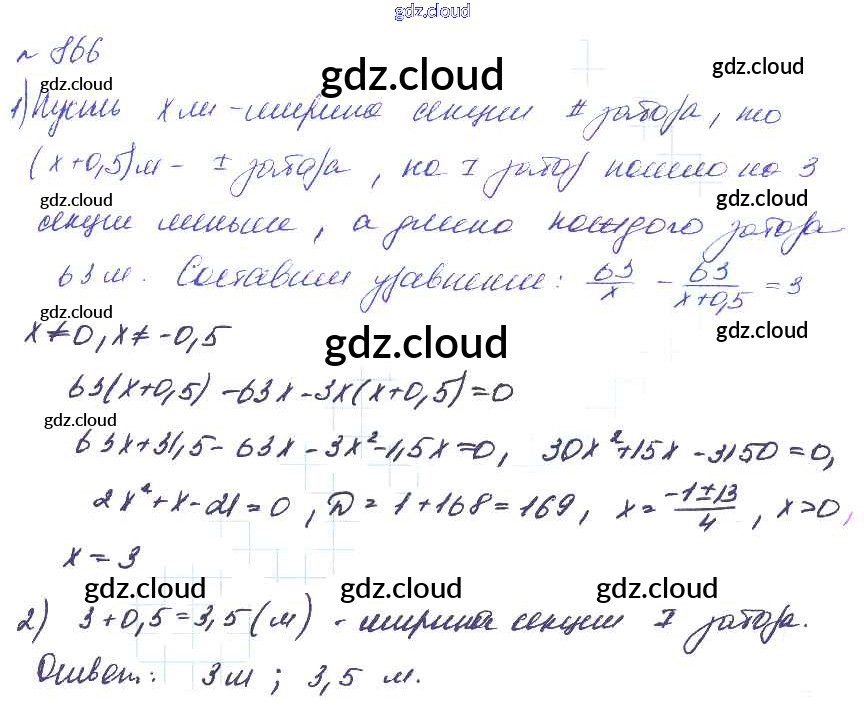 gdz.cloud
№ 866
gdz.cloud gdz.cloud gdz.cloud
1) Пусть x м - ширина секции II забора, то
(x+0,5) м - I забора, на I забор пошло на 3
gdz.cloud gdz.cloud
секции меньше, а длина каждого забора
63 м. Составим уравнение: 63/x - 63/(x+0,5) = 3
gdz.cloud gdz.cloud gdz.cloud
x≠0, x≠-0,5
63(x+0,5) - 63x - 3x(x+0,5) = 0
gdz.cloud
63x+31,5 - 63x - 3x² - 1,5x = 0, 30x² + 15x - 3150 = 0,
2x² + x - 21 = 0, D = 1 + 168 = 169, x = (-1±13)/4, x>0,
x = 3
gdz.cloud gdz.cloud gdz.cloud
2) 3+0,5=3,5 (м) - ширина секции I забора.
Ответ: 3 м; 3,5 м.